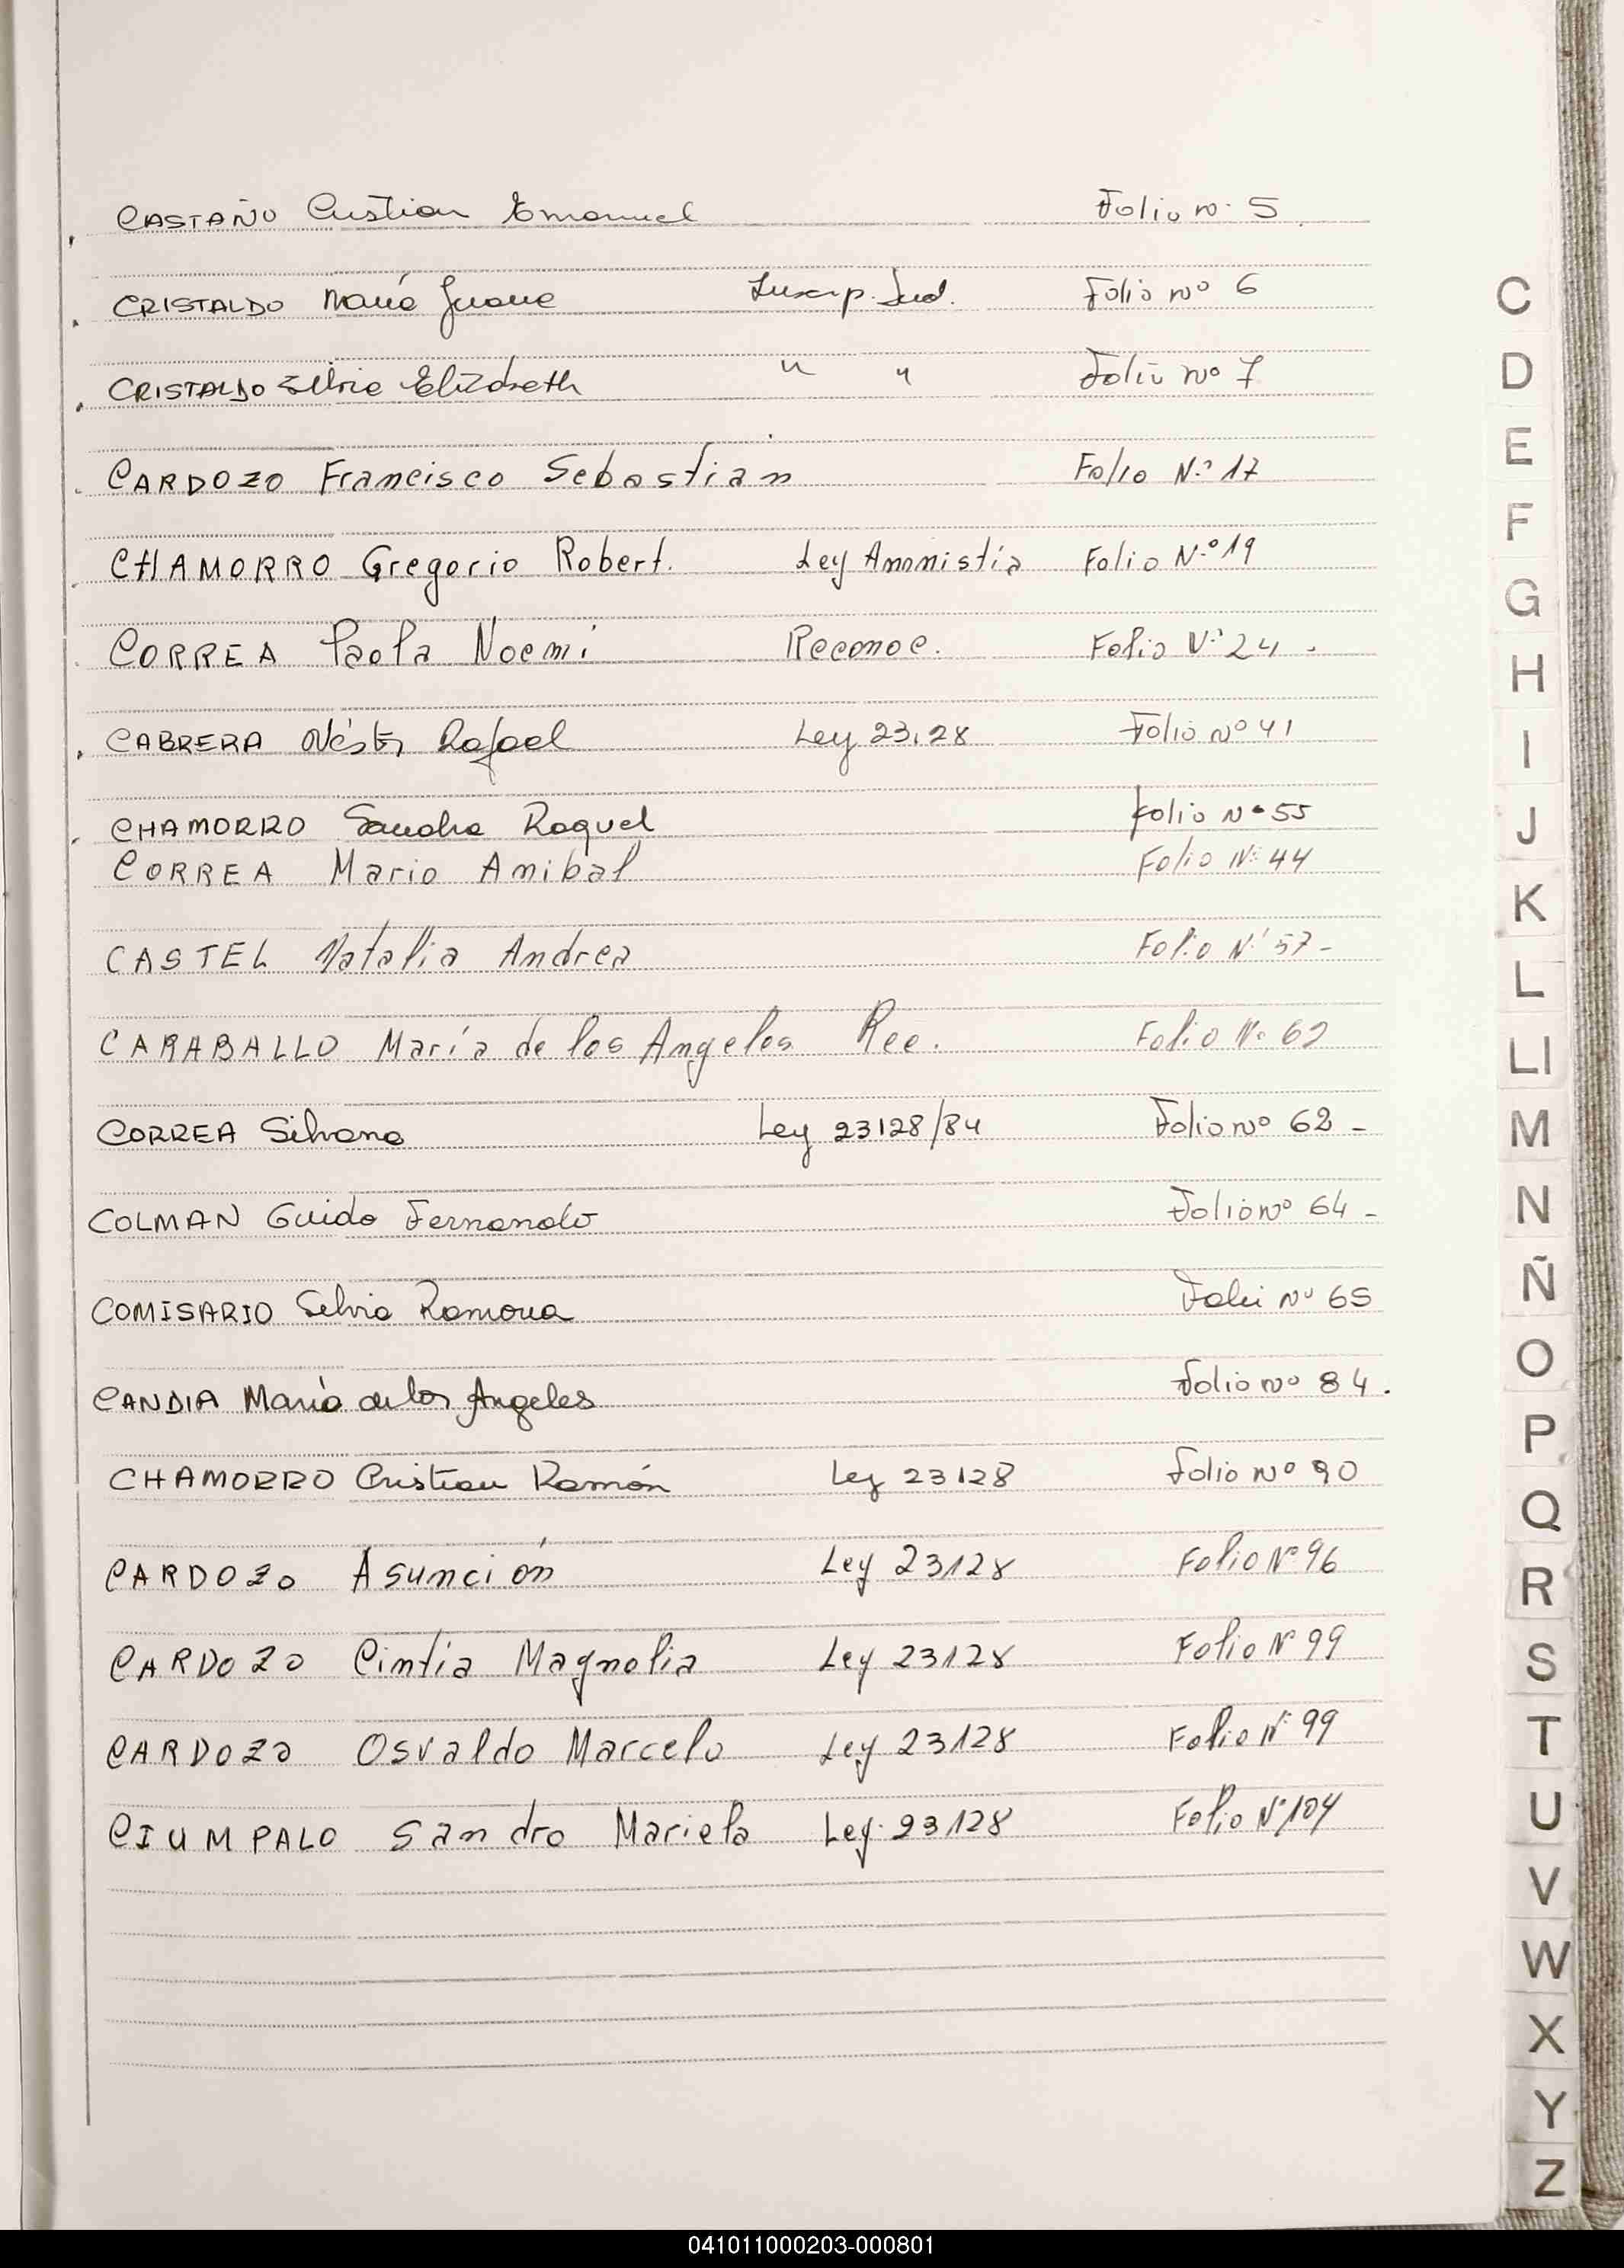 CASTAÑO Cristian Emanuel Folio nº 5
CRISTALDO María Juana Inscrip. Jud. Folio nº 6
CRISTALDO Silvia Elizabeth " " Folio nº 7
CARDOZO Francisco Sebastian Folio N.º 17
CHAMORRO Gregorio Robert. Ley Amnistía Folio N.º 19
CORREA Paola Noemí Reconoc. Folio N.º 24 -
CABRERA Néstor Rafael Ley 23128 Folio nº 41
CHAMORRO Sandra Raquel folio Nº 55
CORREA Mario Anibal Folio N.º 44
CASTEL Natalia Andrea Folio Nº 57-
CARABALLO María de los Angeles Rec. Folio Nº 62
CORREA Silvana Ley 23128/84 Folio nº 62 -
COLMAN Guido Fernando Folio nº 64 -
COMISARIO Silvia Ramona Folio Nº 65
CANDIA María de los Angeles Folio nº 84.
CHAMORRO Cristian Ramón Ley 23128 Folio Nº 90
CARDOZO Asunción Ley 23128 Folio Nº 96
CARDOZO Cintia Magnolia Ley 23128 Folio Nº 99
CARDOZO Osvaldo Marcelo Ley 23128 Folio Nº 99
CIUMPALO Sandro Mariela Ley 23128 Folio Nº 104
C
D
E
F
G
H
I
J
K
L
Ll
M
N
Ñ
O
P
Q
R
S
T
U
V
W
X
Y
Z
041011000203-000801